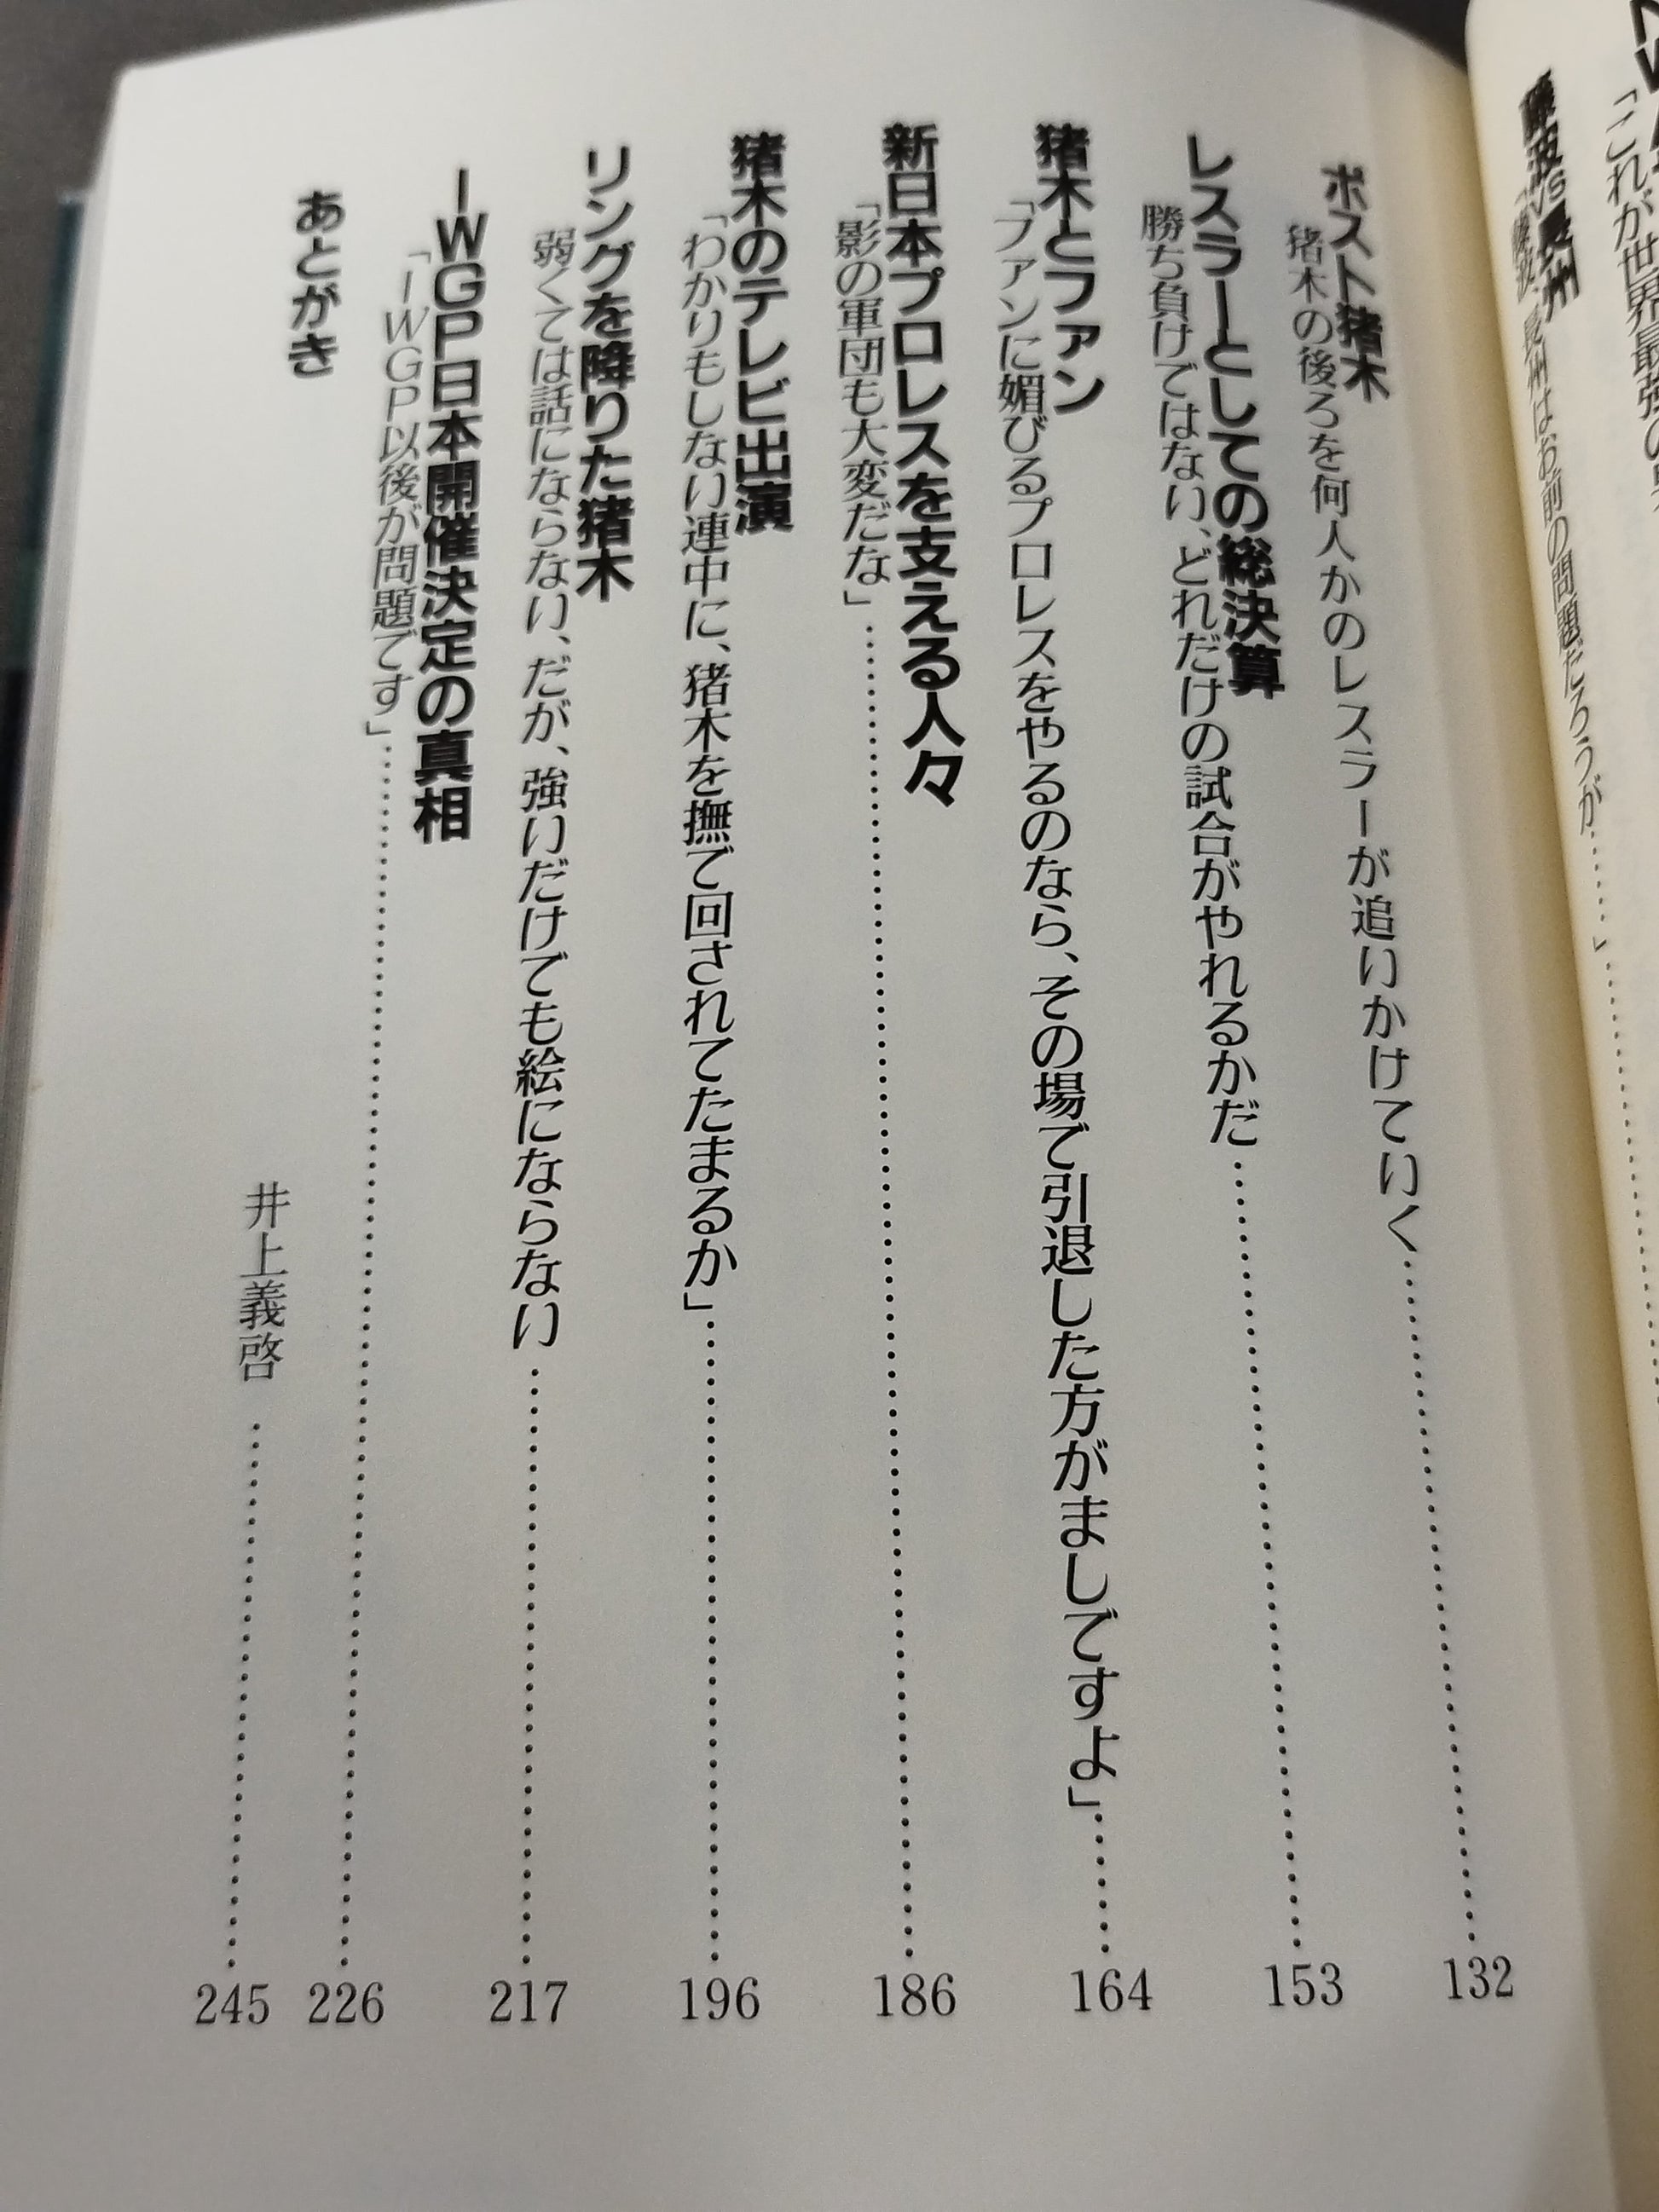 「これが世界最強の
藤波VS長州
「藤波、長州はお前の問題だろうが……」
ポスト猪木
猪木の後ろを何人かのレスラーが追いかけていく 132
レスラーとしての総決算
勝ち負けではない、どれだけの試合がやれるかだ 153
猪木とファン
「ファンに媚びるプロレスをやるのなら、その場で引退した方がましですよ」 164
新日本プロレスを支える人々
「影の軍団も大変だな」 186
猪木のテレビ出演
「わかりもしない連中に、猪木を撫で回されてたまるか」 196
リングを降りた猪木
弱くては話にならない、だが、強いだけでも絵にならない 217
IWGP日本開催決定の真相
「IWGP以後が問題です」 226
あとがき
井上義啓 245